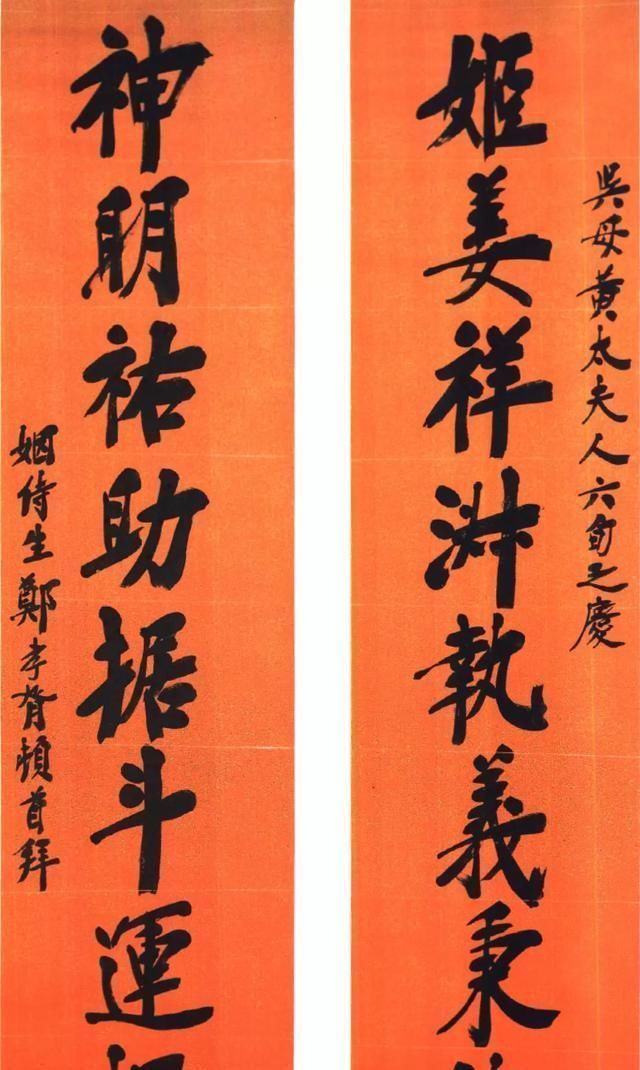 吳母黃太夫人六旬之慶
姬姜祥淑執義秉
神明祐助据斗運
姻侍生鄭孝胥頓首拜